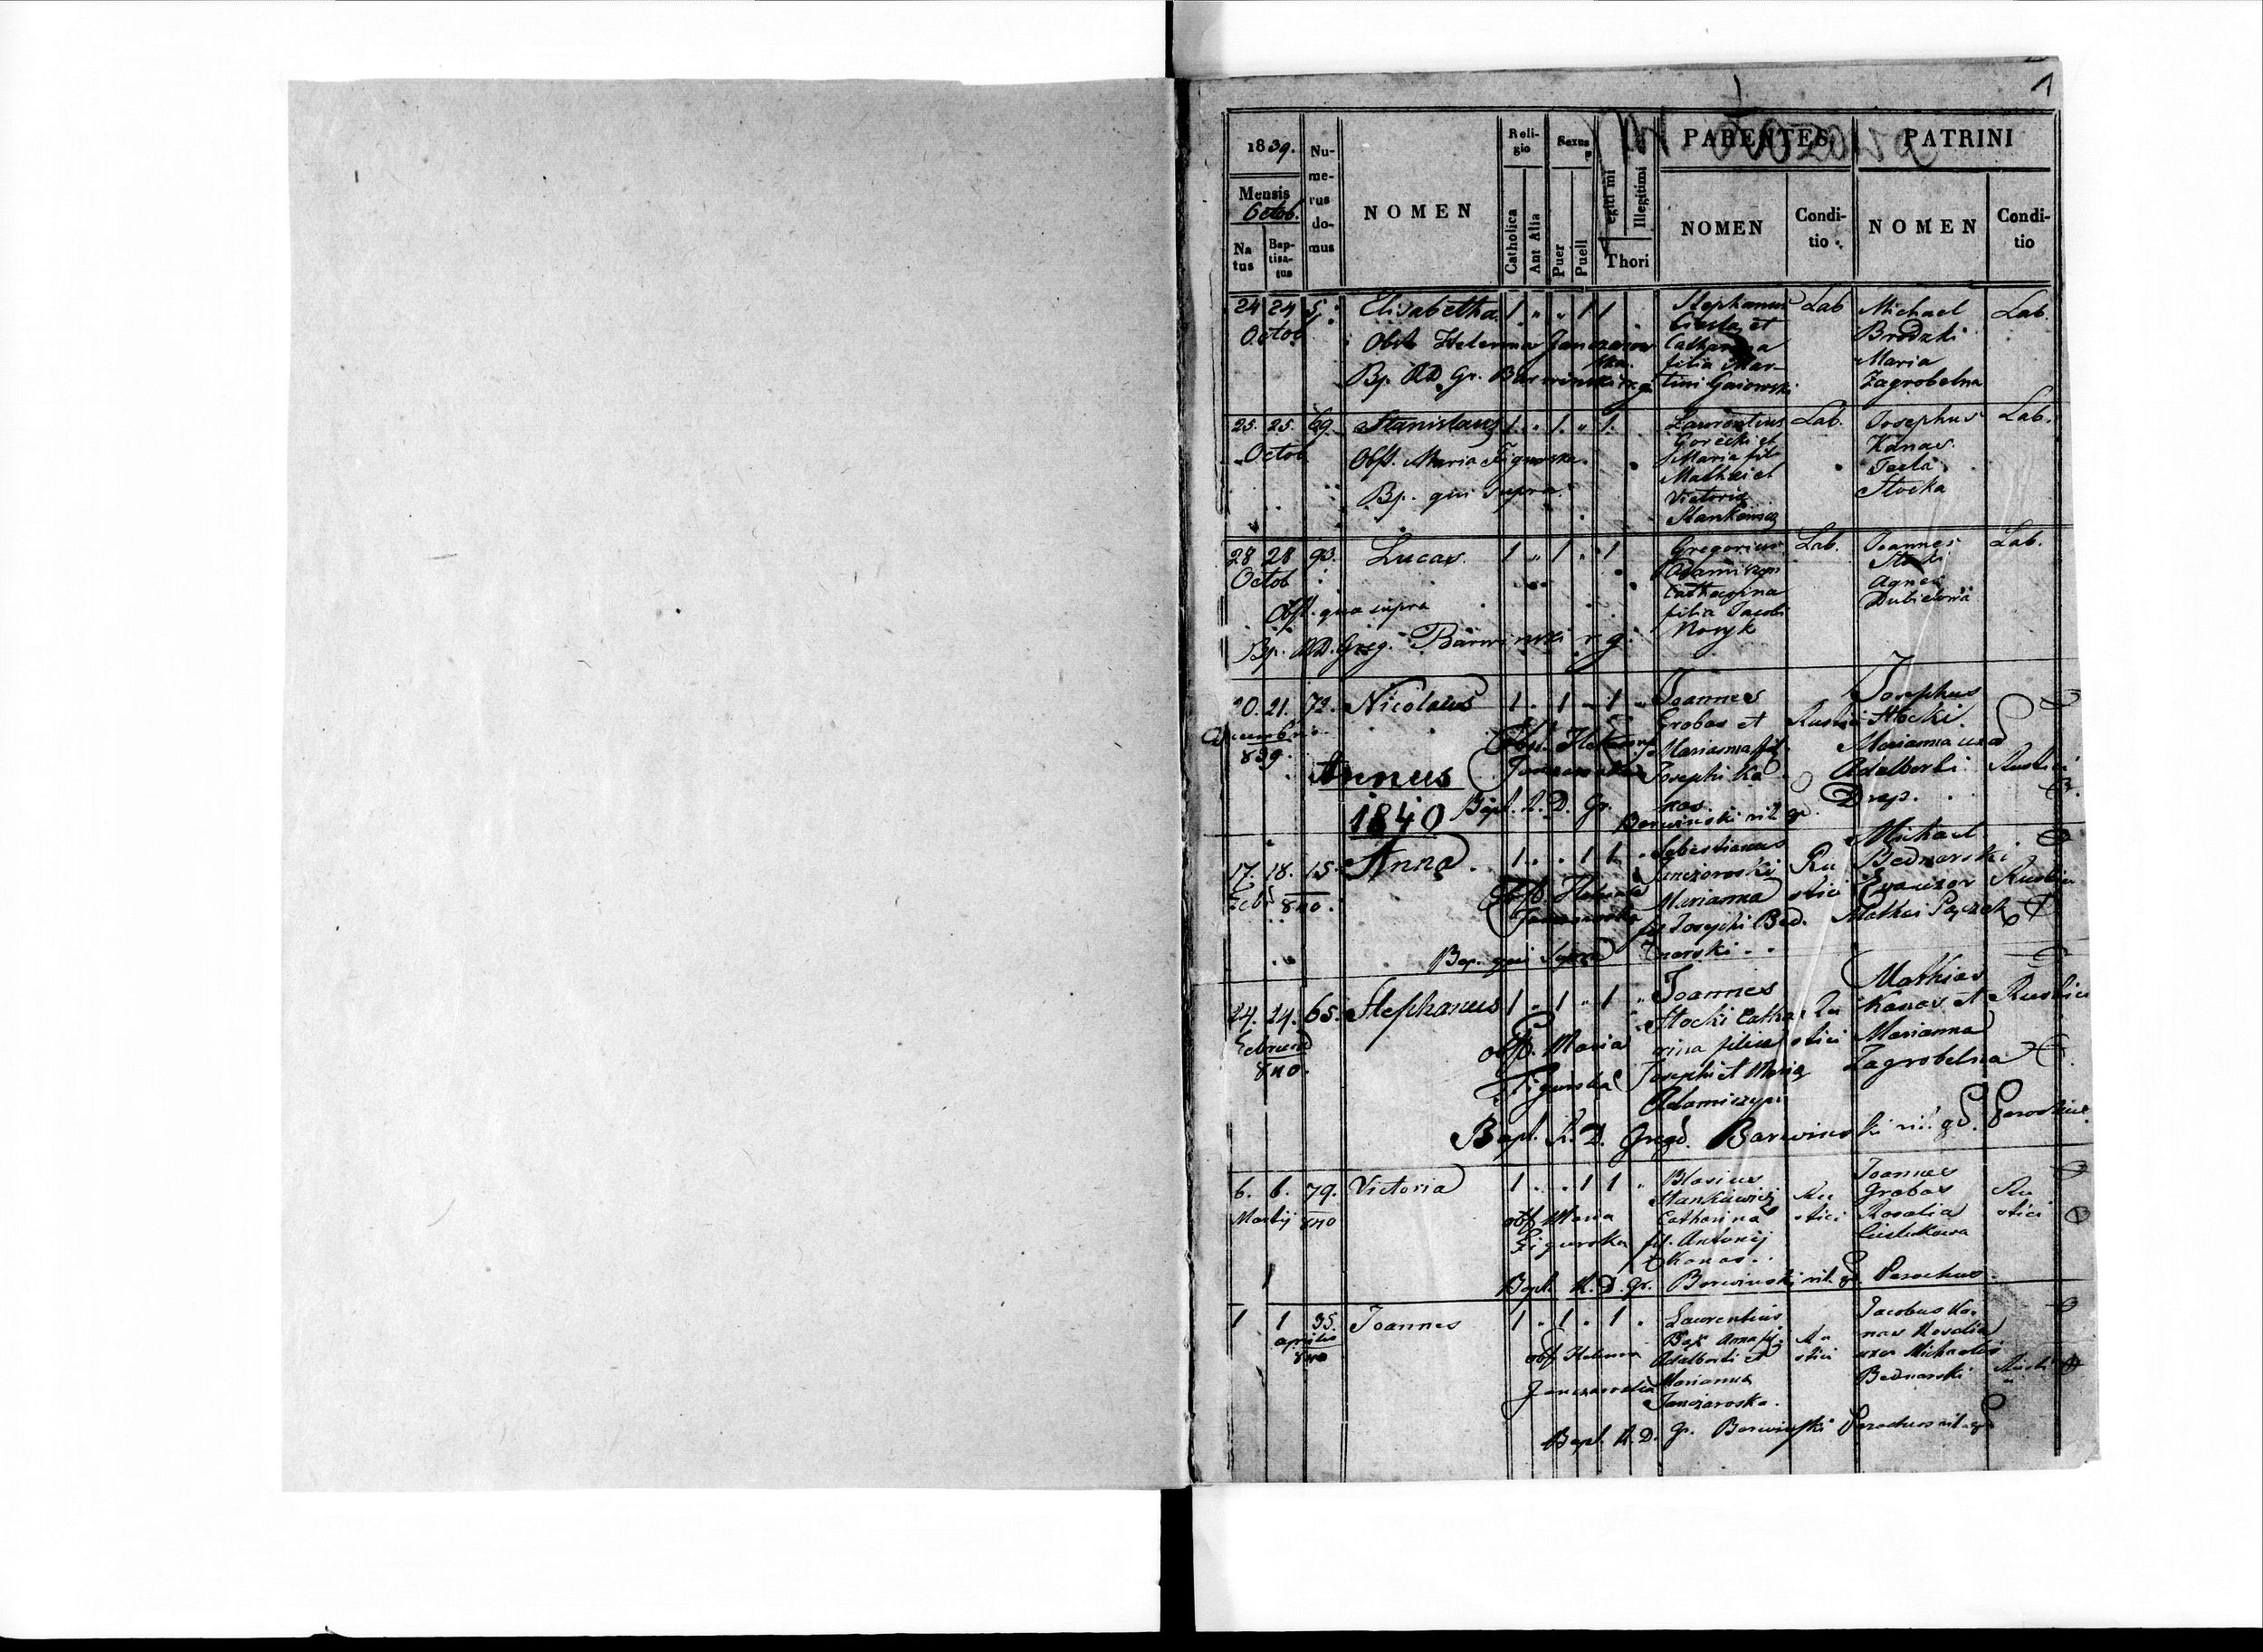 1
1839.
Numerus domus
NOMEN
Religio
Sexus
PARENTES
PATRINI
Mensis
Octob.
Natus
Baptisatus
Catholica
Aut Alia
Puer
Puell
Legitimi
Illegitimi
Thori
NOMEN
Conditio
NOMEN
Conditio
24 24 5. Elisabetha 1 " " 1 1 Stephanus Lab Michael Lab.
Octob Obst Helena Janczarow Ciesla et Brodzki
ska Catharina Maria
Bp. RD. Gr. Barwinski r.g. filia Mar- Zagrobelna
tini Gaiowski
25. 25. 69. Stanislaus 1. " 1. " 1. Laurentius Lab. Josephus Lab.
Octob Obst. Maria Figurska. Gorecki et Kanas.
Maria fil Tecla
Bp. qui supra. Mathei et Stocka
Victoria
28 28 93. Lucas. 1 " 1 " 1 Gregorius Lab. Joannes Lab.
Octob Adamiszyn Stocki
Catharina Agnes
Obst. qua supra filia Jacobi
Bp. RD. Greg. Barwinski r. g.
20. 21. 72. Nicolaus 1 . 1 . 1 " Joannes Josephus
839. Grabas et Rustici Stocki.
Marianna fil Marianna uxor
Annus Josephi Ka Adalberti Rustici
1840 Bapt. R. D. Gr. nas.
Barwinski rit. gr.
17. 18. 15. Anna. 1 . . 1 1 " Sebastianus Michael
Febr 840. Janczarowski Ru Bednarski.
Obst. Helena Marianna stici Eva uxor Rustici
Janczarowska fil Josephi Bed. Mathei
Bap. qui supra narski
24. 24. 65. Stephanus 1 . 1 " 1 " Joannes Mathias
Stocki Catha Ru Kanas et Rustici
840. Obst. Maria rina filia stici Marianna
Figurska Josephi et Maria Zagrobelna
Adamiszyn
Bapt. R. D. Greg. Barwinski rit. gr. Parochus.
6. 6. 79. Victoria 1 . . 1 1 " Blasius Joannes
Martij 840 Stankiewicz Ru Grabas Ru
obst Maria Catharina stici Rosalia stici
Figurska fil. Antonij
Kanas.
Bapt. R. D. Gr. Barwinski rit. gr. Parochus.
1 1 35. Joannes 1 . 1 . 1 . Laurentius Jacobus Ka
aprilis Anna fil. Ru nas Rosalia
840 obst Helena Adalberti et stici uxor Michaelis
Janczarowska Marianna Bednarski Rusti
Janczarowska.
Bapt. R. D. Gr. Barwinski Parochus rit. gr.